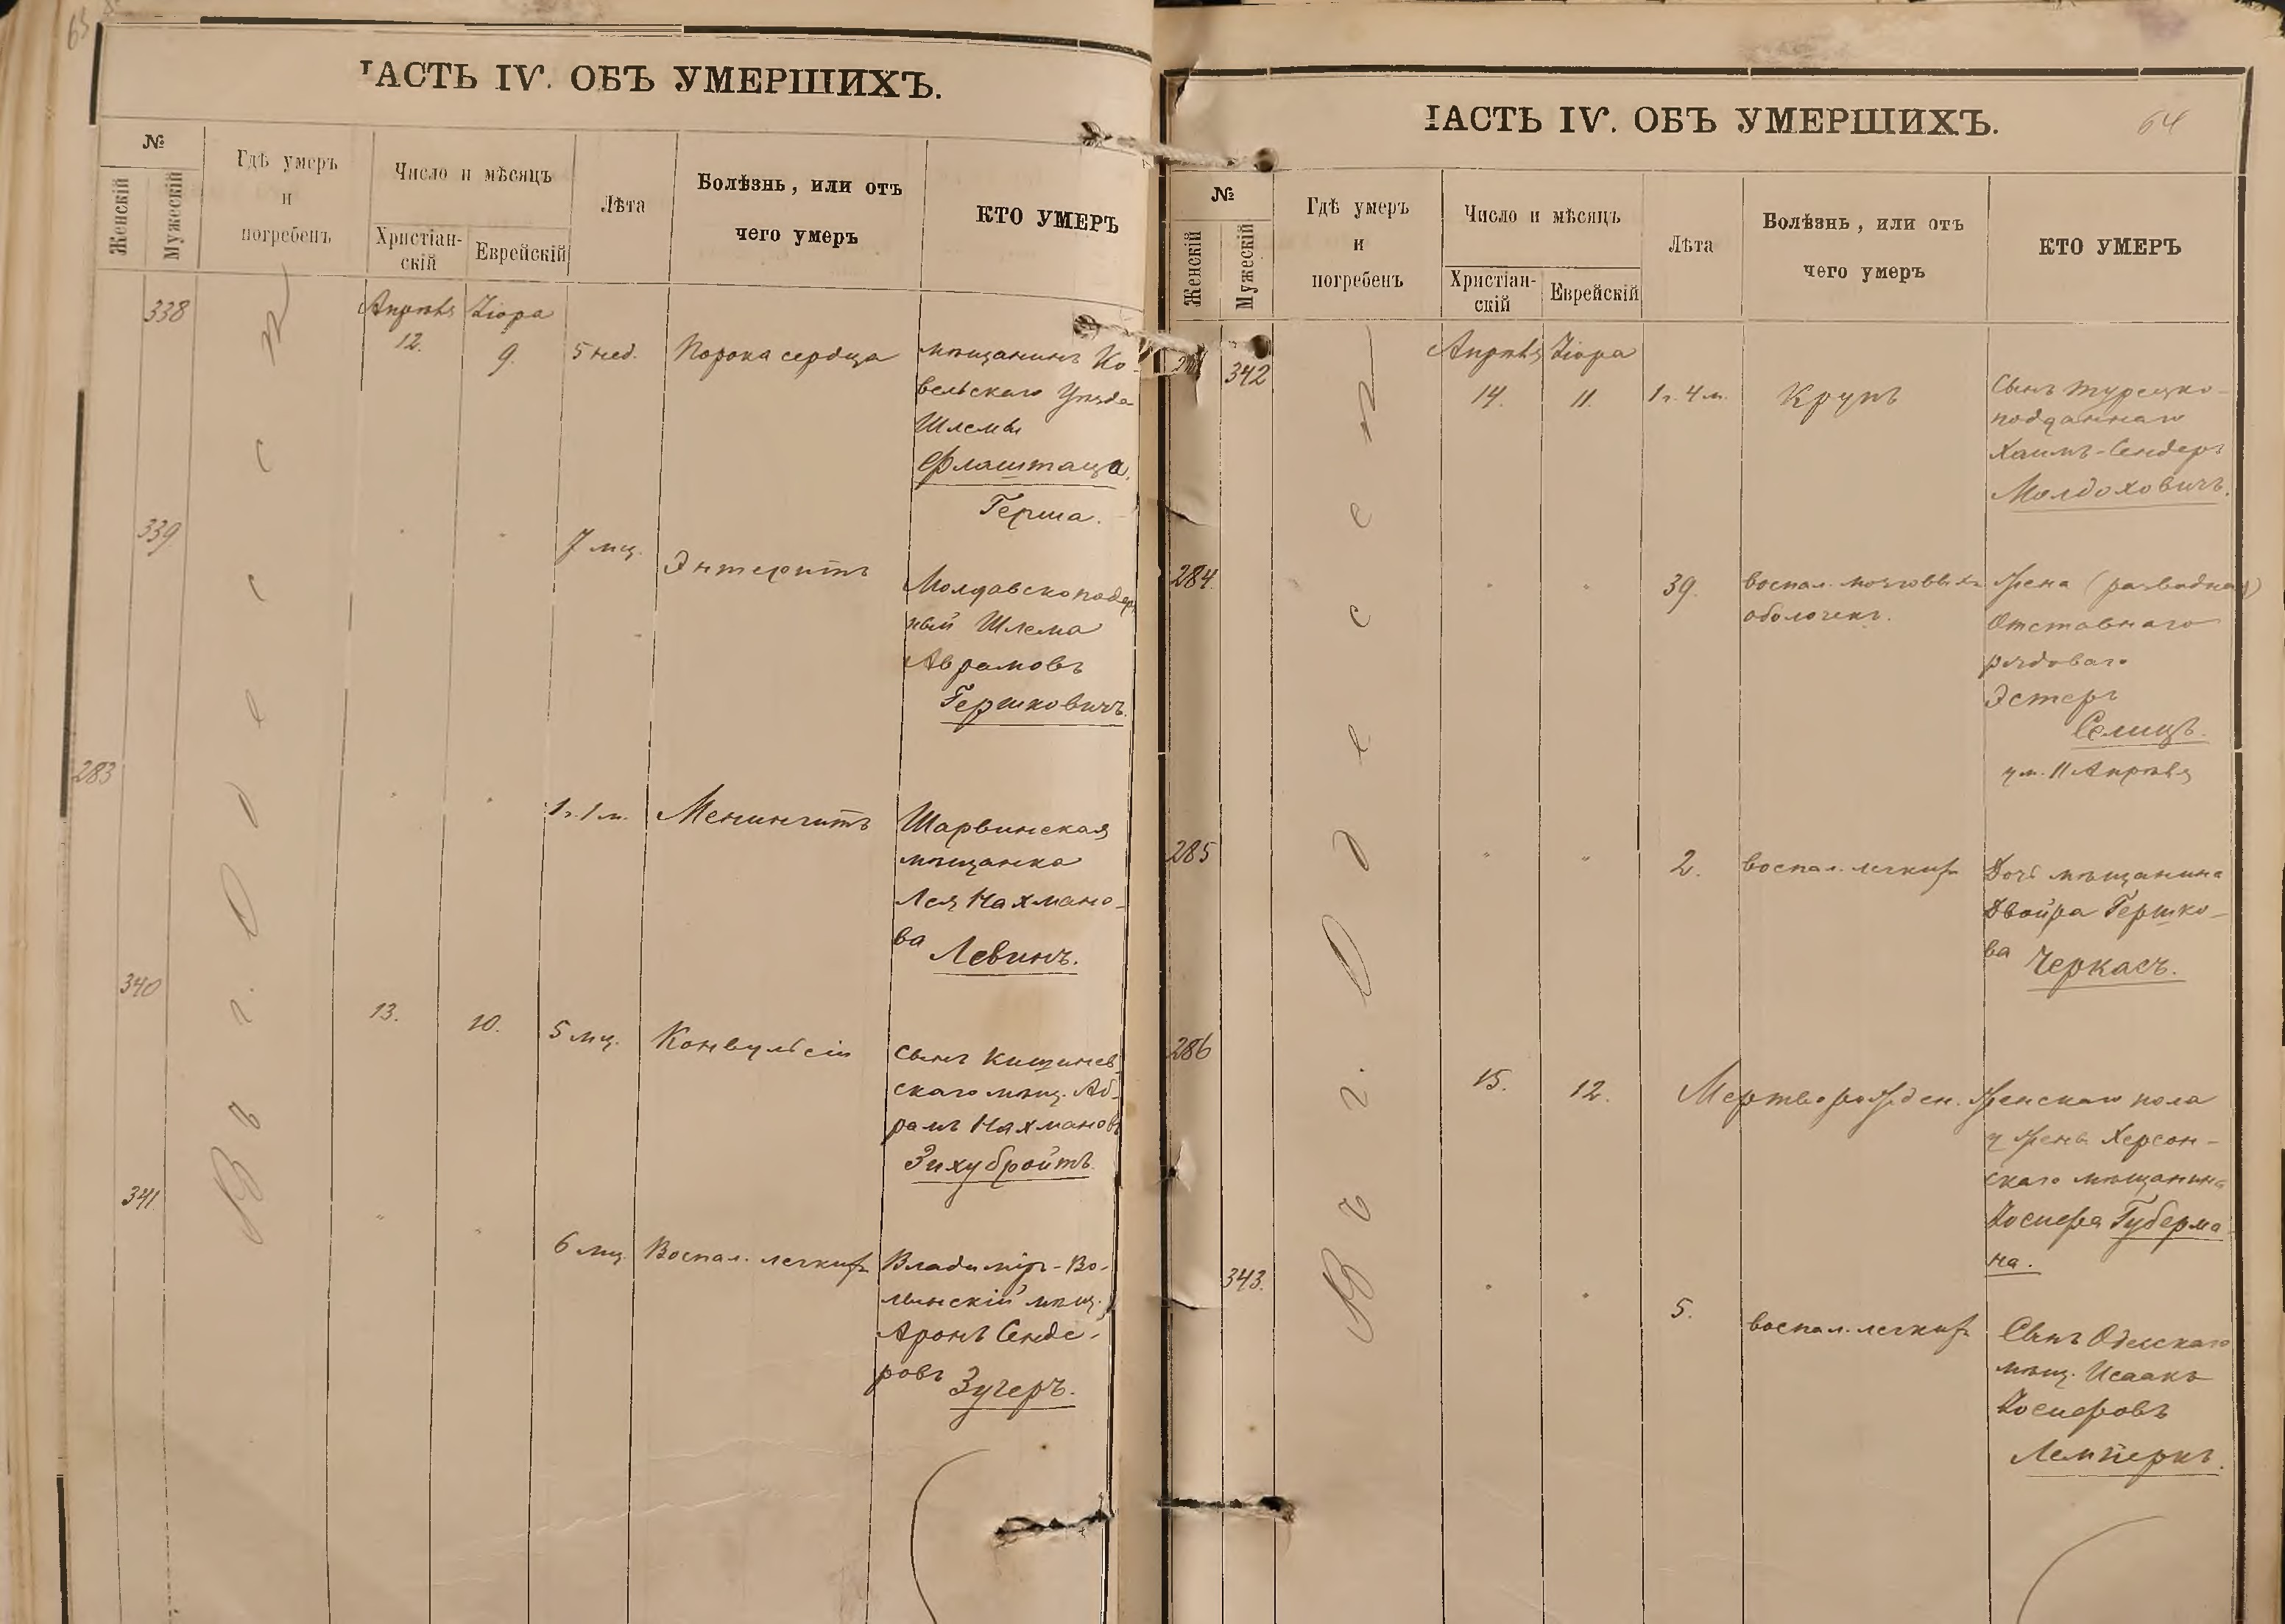 63
ЧАСТЬ IV. ОБЪ УМЕРШИХЪ.
№
Женскій
Мужескій
Гдѣ умеръ
и
погребенъ
Число и мѣсяцъ
Христіан-
скій
Еврейскій
Лѣта
Болѣзнь, или отъ
чего умеръ
КТО УМЕРЪ
Въ г. Одессѣ
338
Апрѣля
Ііора
12.
9.
5 нед.
Порока сердца
мѣщанинъ Ко-
вельскаго Уѣзда
Шлемы
Флаштаца.
Герша.
339
"
"
7 мц.
Энтеритъ
Молдавскоподдан
ный Шлема
Аврамовъ
Гершковичъ.
283
"
"
1 г. 1 м.
Менингитъ
Шарвинская
мѣщанка
Лея Нахмано-
ва Левинъ.
340
13.
10.
5 мц.
Конвульсіи
сынъ Кишинев
скаго мѣщ. Аб-
рамъ Нахмановъ
Зихубройтъ.
341
"
"
6 мц.
Воспал. легкихъ
Владимір-Во-
лынскій мѣщ.
Аронъ Сенде-
ровъ Зугеръ.
ЧАСТЬ IV. ОБЪ УМЕРШИХЪ.
64
№
Женскій
Мужескій
Гдѣ умеръ
и
погребенъ
Число и мѣсяцъ
Христіан-
скій
Еврейскій
Лѣта
Болѣзнь, или отъ
чего умеръ
КТО УМЕРЪ
Въ г. Одессѣ
342
Апрѣля
Ііора
14.
11.
1 г. 4 м.
Крупъ
Сынъ турецко-
подданнаго
Хаимъ-Сендеръ
Молдоховичъ.
284
"
"
39.
воспал. мозговыхъ
оболочекъ.
жена (разводная)
Отставнаго
рядоваго
Эстеръ
Селицъ.
ум. 11 Апрѣля
285
"
"
2.
воспал. легкихъ
Дочь мѣщанина
Двойра Гершко-
ва Черкасъ.
286
15.
12.
Мертворожден. женскаго пола
у жены Херсон-
скаго мѣщанина
Іосифа Губерма
на.
343.
"
"
5.
воспал. легкихъ
Сынъ Одесскаго
мѣщ. Исаакъ
Іосифовъ
Лемперкъ.